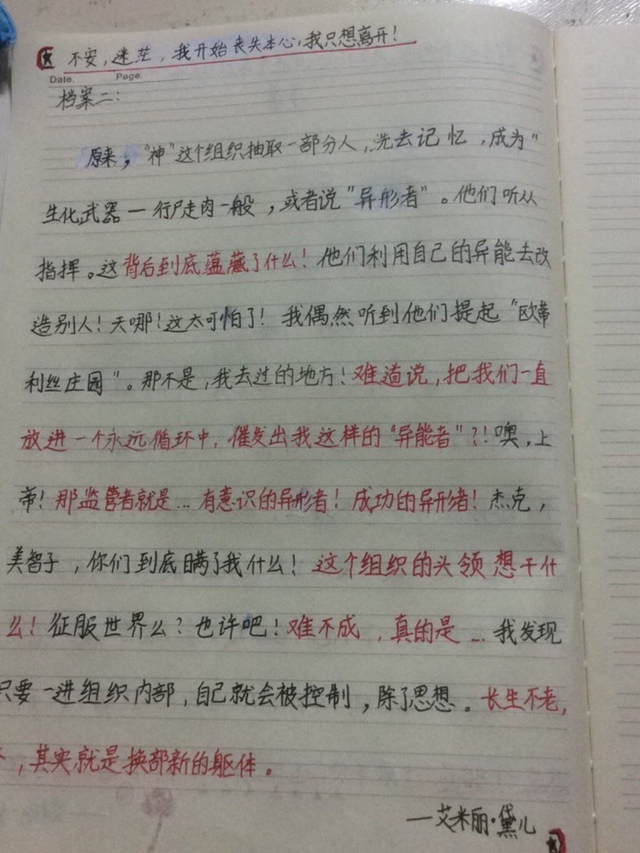 不安,迷茫,我开始丧失本心,我只想离开!
Date. Page.
档案二:
原来,"神"这个组织抽取一部分人,洗去记忆,成为"
生化武器—行尸走肉一般,或者说"异形者"。他们听从
指挥。这背后到底蕴藏了什么!他们利用自己的异能去改
造别人!天哪!这太可怕了!我偶然听到他们提起"欧蒂
利丝庄园"。那不是,我去过的地方!难道说,把我们一直
放进一个永远循环中,催发出我这样的"异能者"?!噢,上
帝!那监管者就是…有意识的异形者!成功的异形者!杰克,
美智子,你们到底瞒了我什么!这个组织的头领想干什
么!征服世界么?也许吧!难不成,真的是…我发现
只要一进组织内部,自己就会被控制,除了思想。长生不老,
,其实就是换部新的躯体。
—艾米丽·黛儿